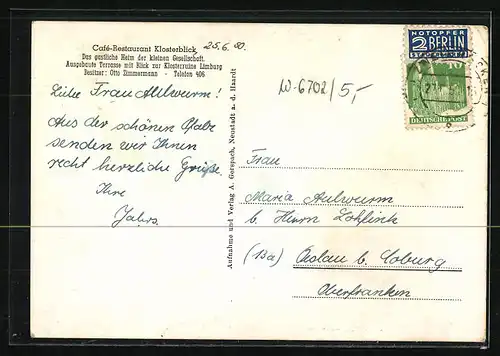 Café-Restaurant Klosterblick
Das gastliche Heim der kleinen Gesellschaft.
Ausgebaute Terrasse mit Blick zur Klosterruine Limburg
Besitzer: Otto Zimmermann - Telefon 406
25.6.50.
Liebe Frau Aulwurm!
Aus der schönen Pfalz
senden wir Ihnen
recht herzliche Grüße.
Ihre
Jahrs.
Aufnahme und Verlag A. Gerspach, Neustadt a. d. Haardt
W-6702/5,-
NOTOPFER
2 BERLIN
STEUERMARKE
DEUTSCHE POST
Frau
Maria Aulwurm
b. Herrn
(13a) Oeslau b. Coburg
Oberfranken